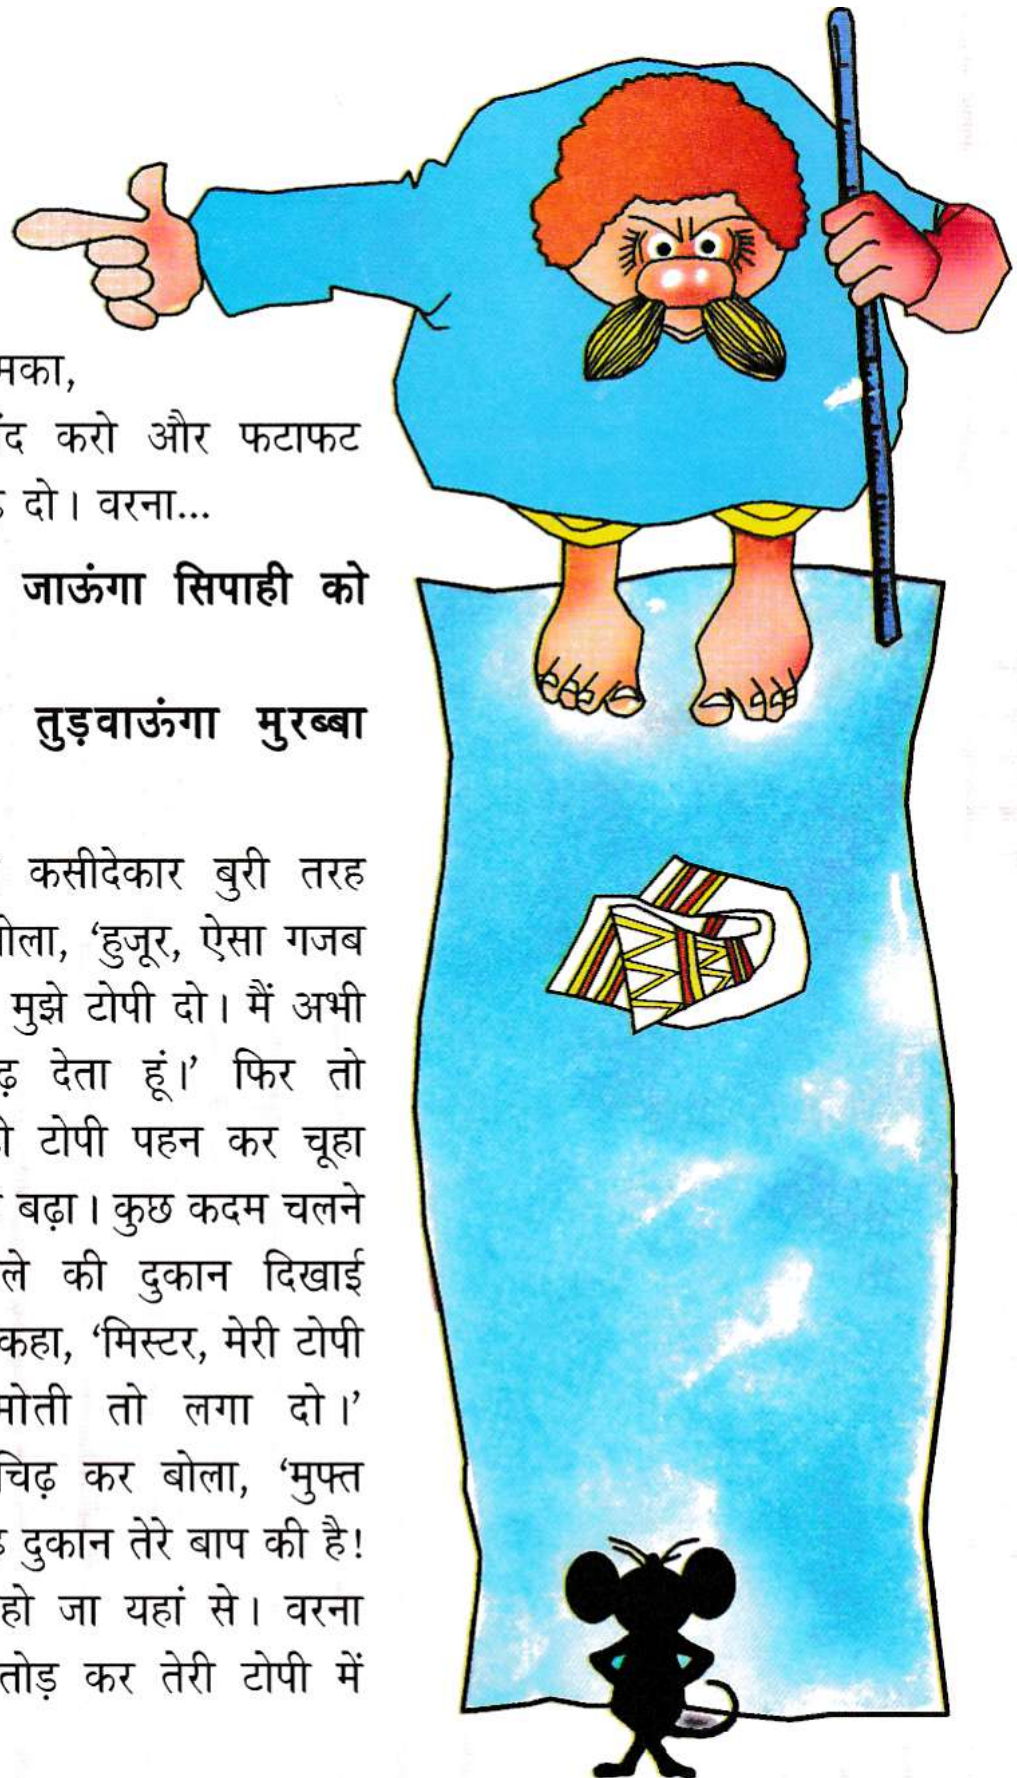 मका,
द करो और फटाफट
दो। वरना...
जाऊंगा सिपाही को
तुड़वाऊंगा मुरब्बा
कसीदेकार बुरी तरह
ोला, ‘हुजूर, ऐसा गजब
मुझे टोपी दो। मैं अभी
ढ़ देता हूं।’ फिर तो
टोपी पहन कर चूहा
बढ़ा। कुछ कदम चलने
ले की दुकान दिखाई
कहा, ‘मिस्टर, मेरी टोपी
मोती तो लगा दो।’
चिढ़ कर बोला, ‘मुफ्त
दुकान तेरे बाप की है!
हो जा यहां से। वरना
तोड़ कर तेरी टोपी में